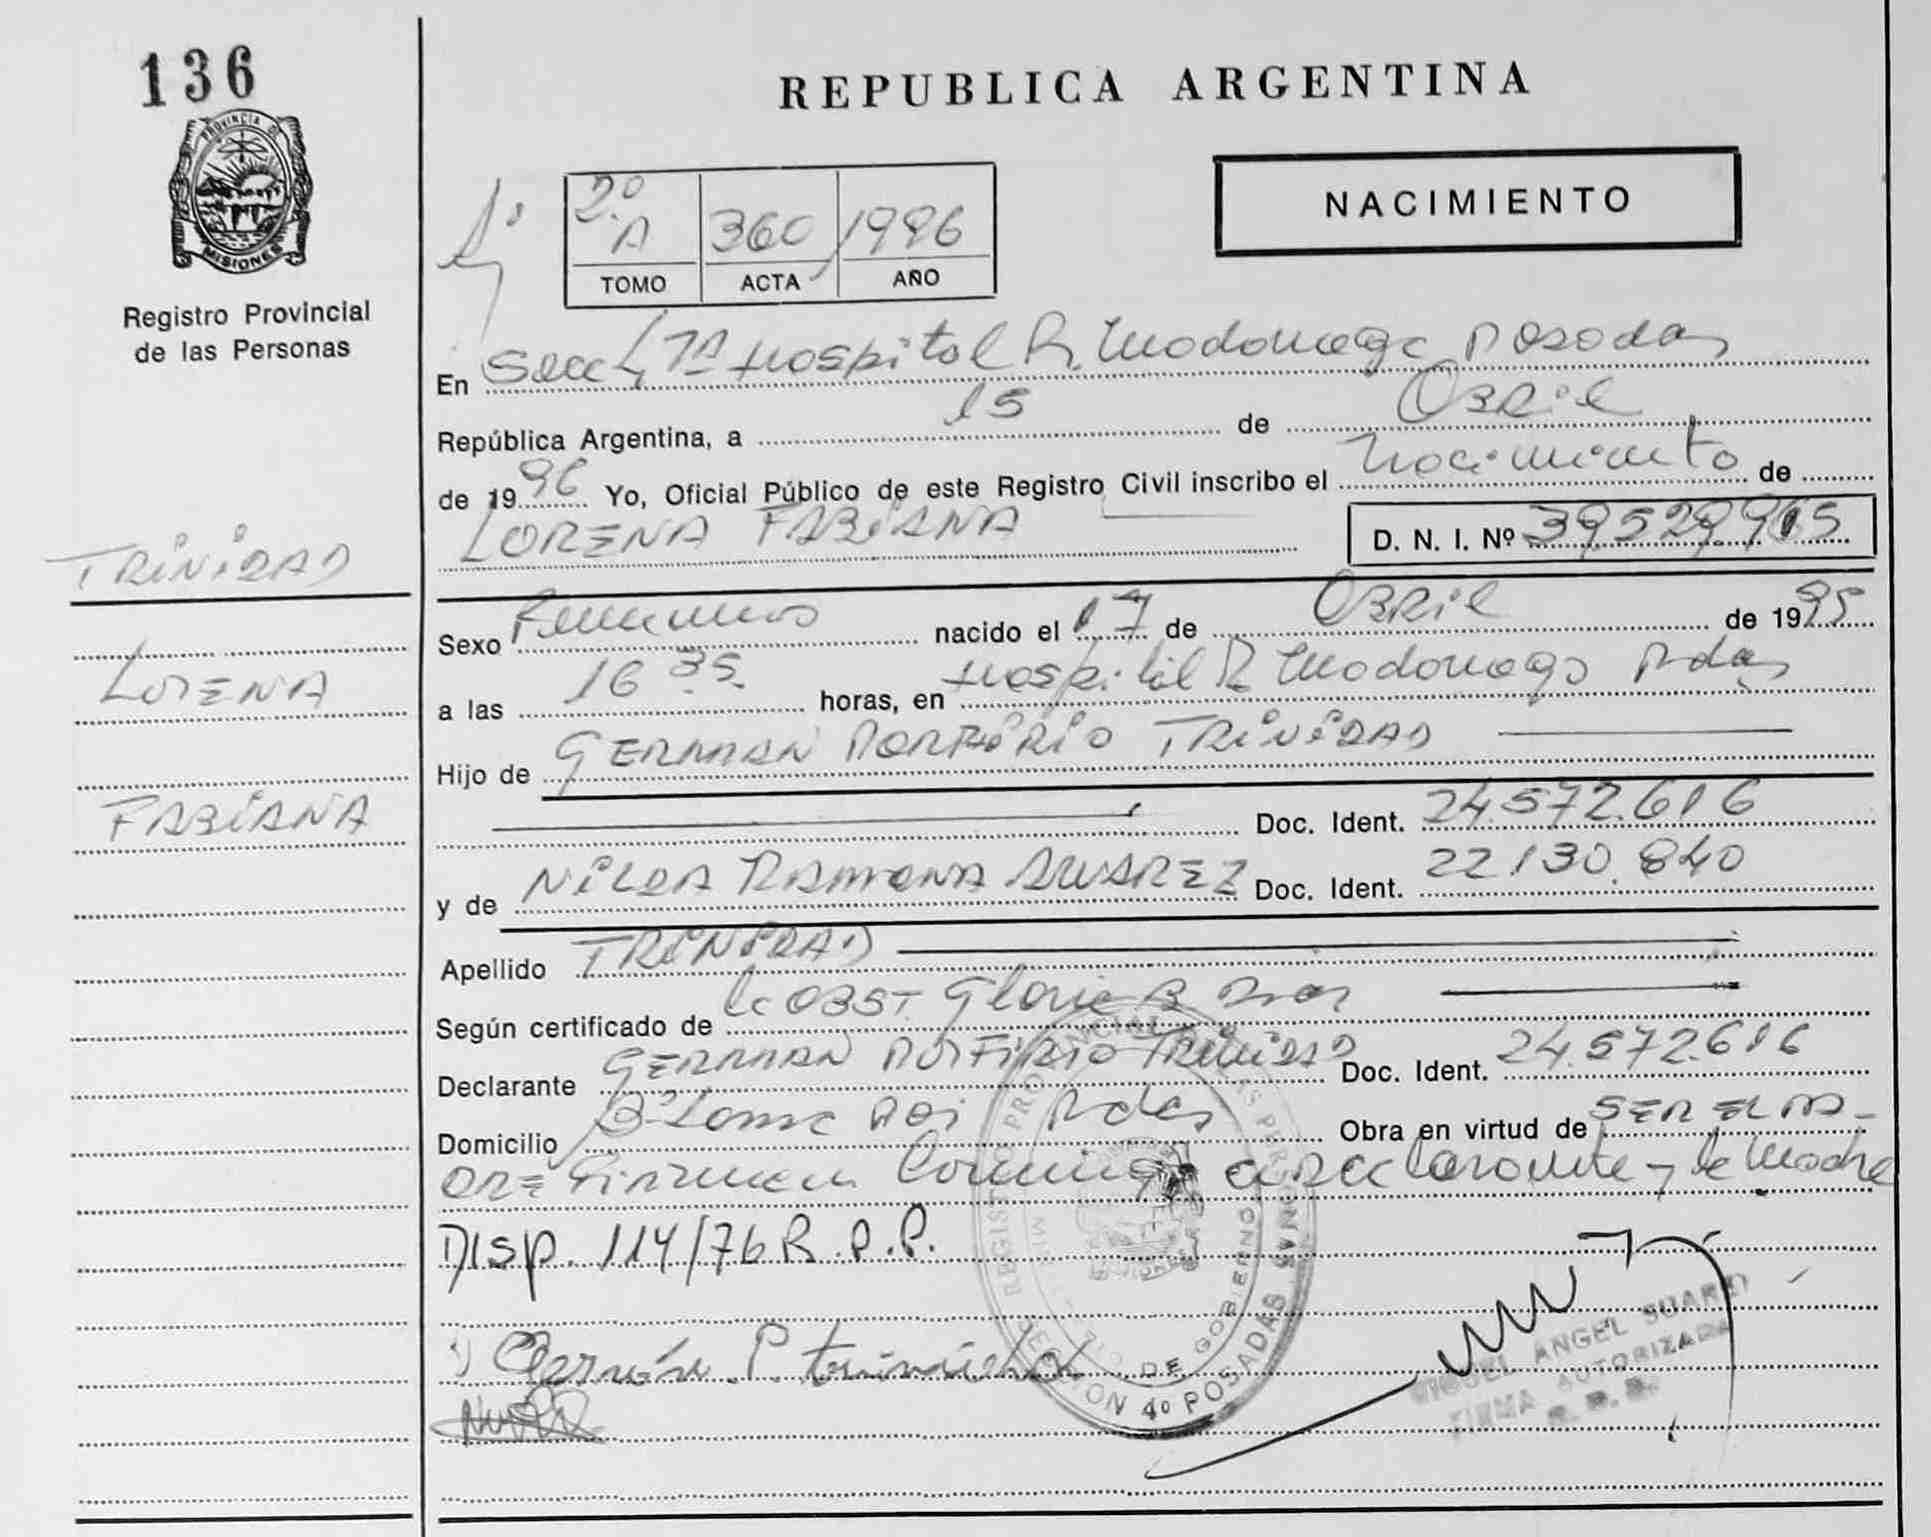 136
PROVINCIA DE
MISIONES
Registro Provincial
de las Personas
TRINIDAD
LORENA
FABIANA
REPUBLICA ARGENTINA
NACIMIENTO
2º A 360 1996
TOMO ACTA AÑO
En Secc 4ª Hospital R. Madariaga Posadas
República Argentina, a 15 de Abril
de 1996 Yo, Oficial Público de este Registro Civil inscribo el Nacimiento de
LORENA FABIANA D. N. I. Nº 39529915
Sexo Femenino nacido el 17 de Abril de 1995
a las 16 35 horas, en Hospital R Madariaga Pdas
Hijo de GERMAN PORFIRIO TRINIDAD
Doc. Ident. 24.572.616
y de NILDA RAMONA ALVAREZ Doc. Ident. 22.130.840
Apellido TRINIDAD
Según certificado de OBST. Gloria B
Declarante GERMAN PORFIRIO TRINIDAD Doc. Ident. 24.572.616
Domicilio Bº Loma Poi Pdas Obra en virtud de SER EL PA-
DRE Firman el declarante y la Madre
Disp. 114/76 R.P.P.
Germán P. trinidad
REGISTRO PROVINCIAL DE LAS PERSONAS
DE GOBIERNO
SECCION 4º POSADAS
MIGUEL ANGEL SUAREZ
FIRMA AUTORIZADA
R. P. P.